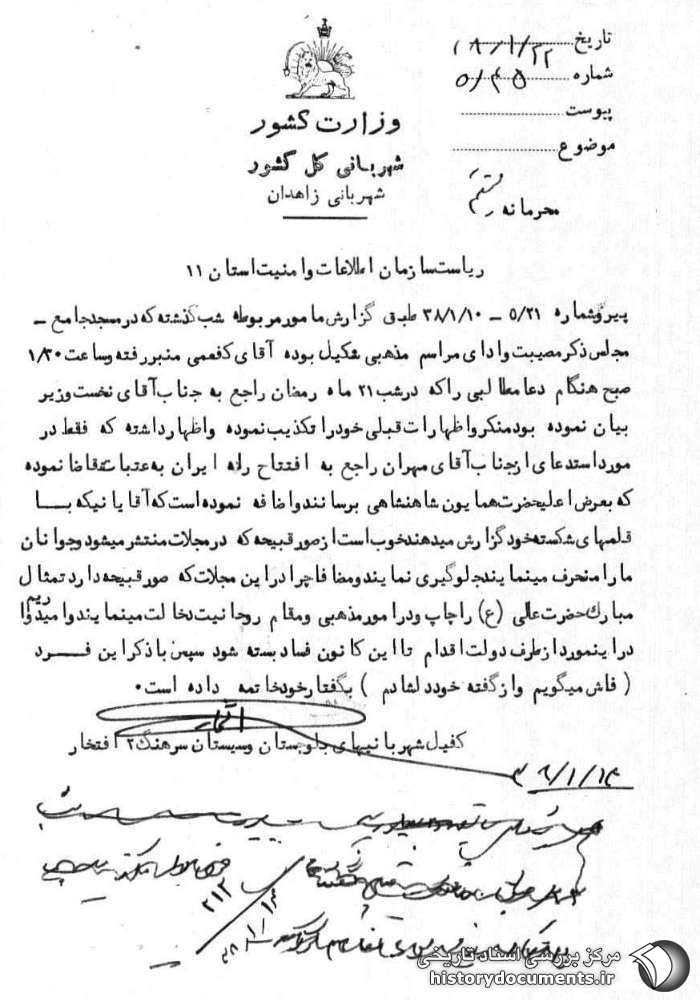 تاریخ ۱۸/۱/۲۲
شماره ۵/۴۵
پیوست
موضوع
وزارت کشور
شهربانی کل کشور
شهربانی زاهدان
محرمانه مستقیم
ریاست سازمان اطلاعات و امنیت استان ۱۱
پیرو شماره ۵/۲۱ – ۳۸/۱/۱۰ طبق گزارش مامور مربوطه شب گذشته که در مسجد جامع –
مجلس ذکر مصیبت و ادای مراسم مذهبی تشکیل بوده آقای کفعمی منبر رفته و ساعت ۱/۳۰
صبح هنگام دعا مطالبی را که در شب ۲۱ ماه رمضان راجع به جناب آقای نخست وزیر
بیان نموده بود منکر و اظهارات قبلی خود را تکذیب نموده و اظهار داشته که فقط در
مورد استدعای از جناب آقای مهران راجع به افتتاح راه ایران به عتبات تقاضا نموده
که بعرض اعلیحضرت همایون شاهنشاهی برسانند و اضافه نموده است که آقایانیکه با
قلمهای شکسته خود گزارش میدهند خوب است از صور قبیحه که در مجلات منتشر میشود و جوانان
ما را منحرف مینمایند جلوگیری نمایند و مضافا چرا در این مجلات که صور قبیحه دارد تمثال
مبارک حضرت عالی (ع) را چاپ و در امور مذهبی و مقام روحانیت دخالت مینمایند و امیدواریم
در اینمورد از طرف دولت اقدام تا این کانون فساد بسته شود سپس با ذکر این فرد
( فاش میگویم و از گفته خود دلشادم ) بگفتار خود خاتمه داده است.
کفیل شهربانیهای بلوچستان و سیستان سرهنگ ۲ افتخار
۳۸/۱/۱۳
۲۱۳
۳۸/۱/۱۳
مرکز بررسی اسناد تاریخی
historydocuments.ir